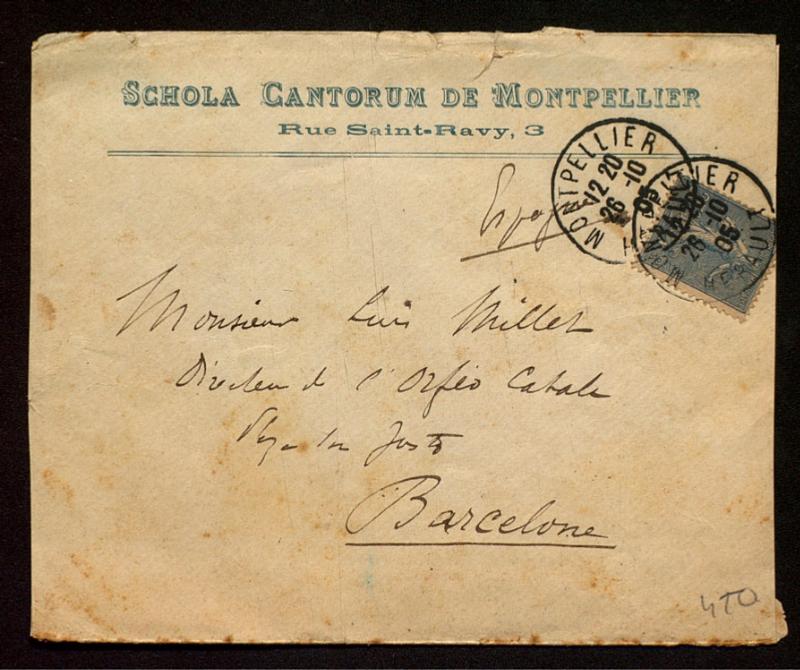 SCHOLA CANTORUM DE MONTPELLIER
Rue Saint-Ravy, 3
MONTPELLIER
12 20
26 -10
05
HERAULT
26 -10
05
HERAULT
Espagne
Monsieur Luis Millet
Directeur de l'Orfeo Catala
Sn Justo
Barcelone
410